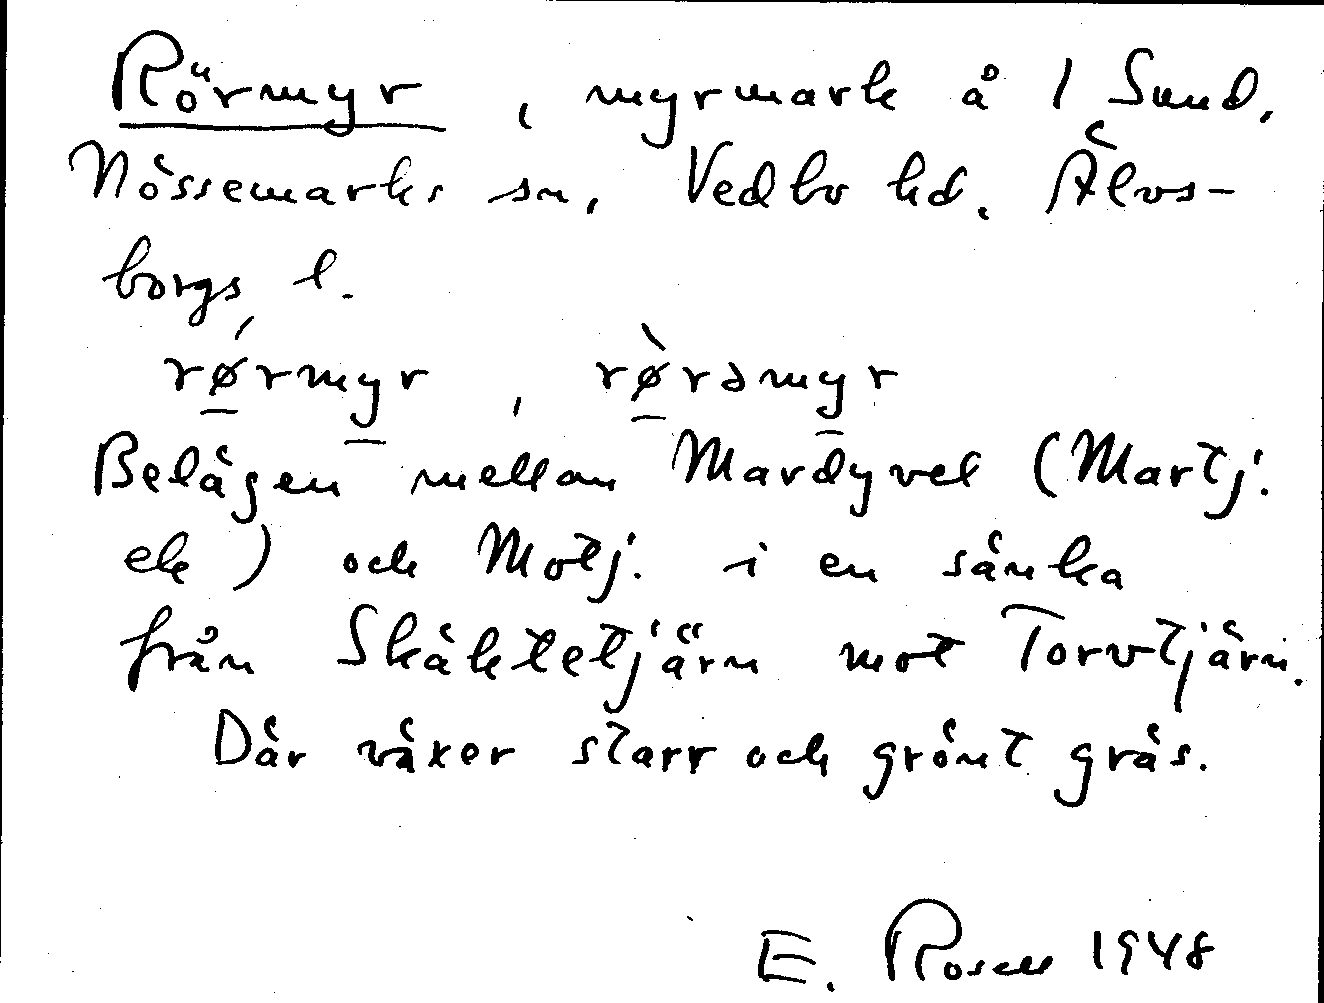 Rörmyr, myrmark å 1 Sund,
Nössemarks sn, Vedbo hd. Älvs-
borgs l.
rǿrmyr, rø̀rəmyr
Belägen mellan Mardyvel (Martj.
ek) och Motj. i en sänka
från Skäktetjärn mot Torvtjärn.
Där växer starr och grönt gräs.
E. Rosell 1948